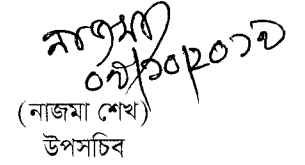 নাজমা
০৮/১০/২০১৮
(নাজমা শেখ)
উপসচিব